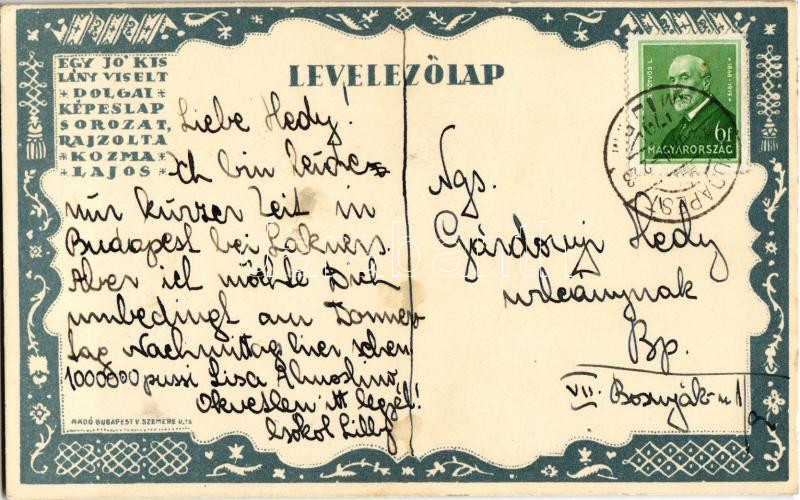 EGY JÓ KIS
LÁNY VISELT
DOLGAI
KÉPESLAP
SOROZAT,
RAJZOLTA
KOZMA
LAJOS
LEVELEZŐLAP
Liebe Hedy!
Ich bin leider
nur kurzer Zeit in
Budapest bei Lakners.
Aber ich möchte Dich
umbedingt am Donners-
tag Nachmittag hier sehen
1000000 pussi Lisa
Okvetlen itt legyél!
csókol Lilly
RADÓ BUDAPEST V. SZEMERE U.
EÖTVÖS L.
1848-1919
6f
MAGYARORSZÁG
BUDAPEST
Ngs.
Gárdonyi Hedy
urleánynak
Bp.
VII. Bosnyák-u 1